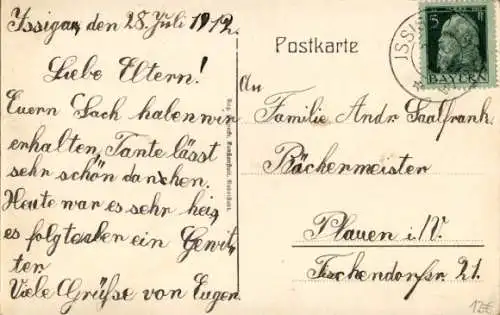 Issigau, den 28. Juli 1912.
Liebe Eltern!
Euern Sach haben wir
erhalten, Tante lässt
sehr schön danken.
Heute war es sehr heiß,
es folgte aber ein Gewit-
ter
Viele Grüße von Eugen.
Postkarte
An
Familie Andr. Saalfrank
Bäckermeister
Plauen i./V.
Fischendorfsr. 21.
5
BAYERN
ISSI
12€